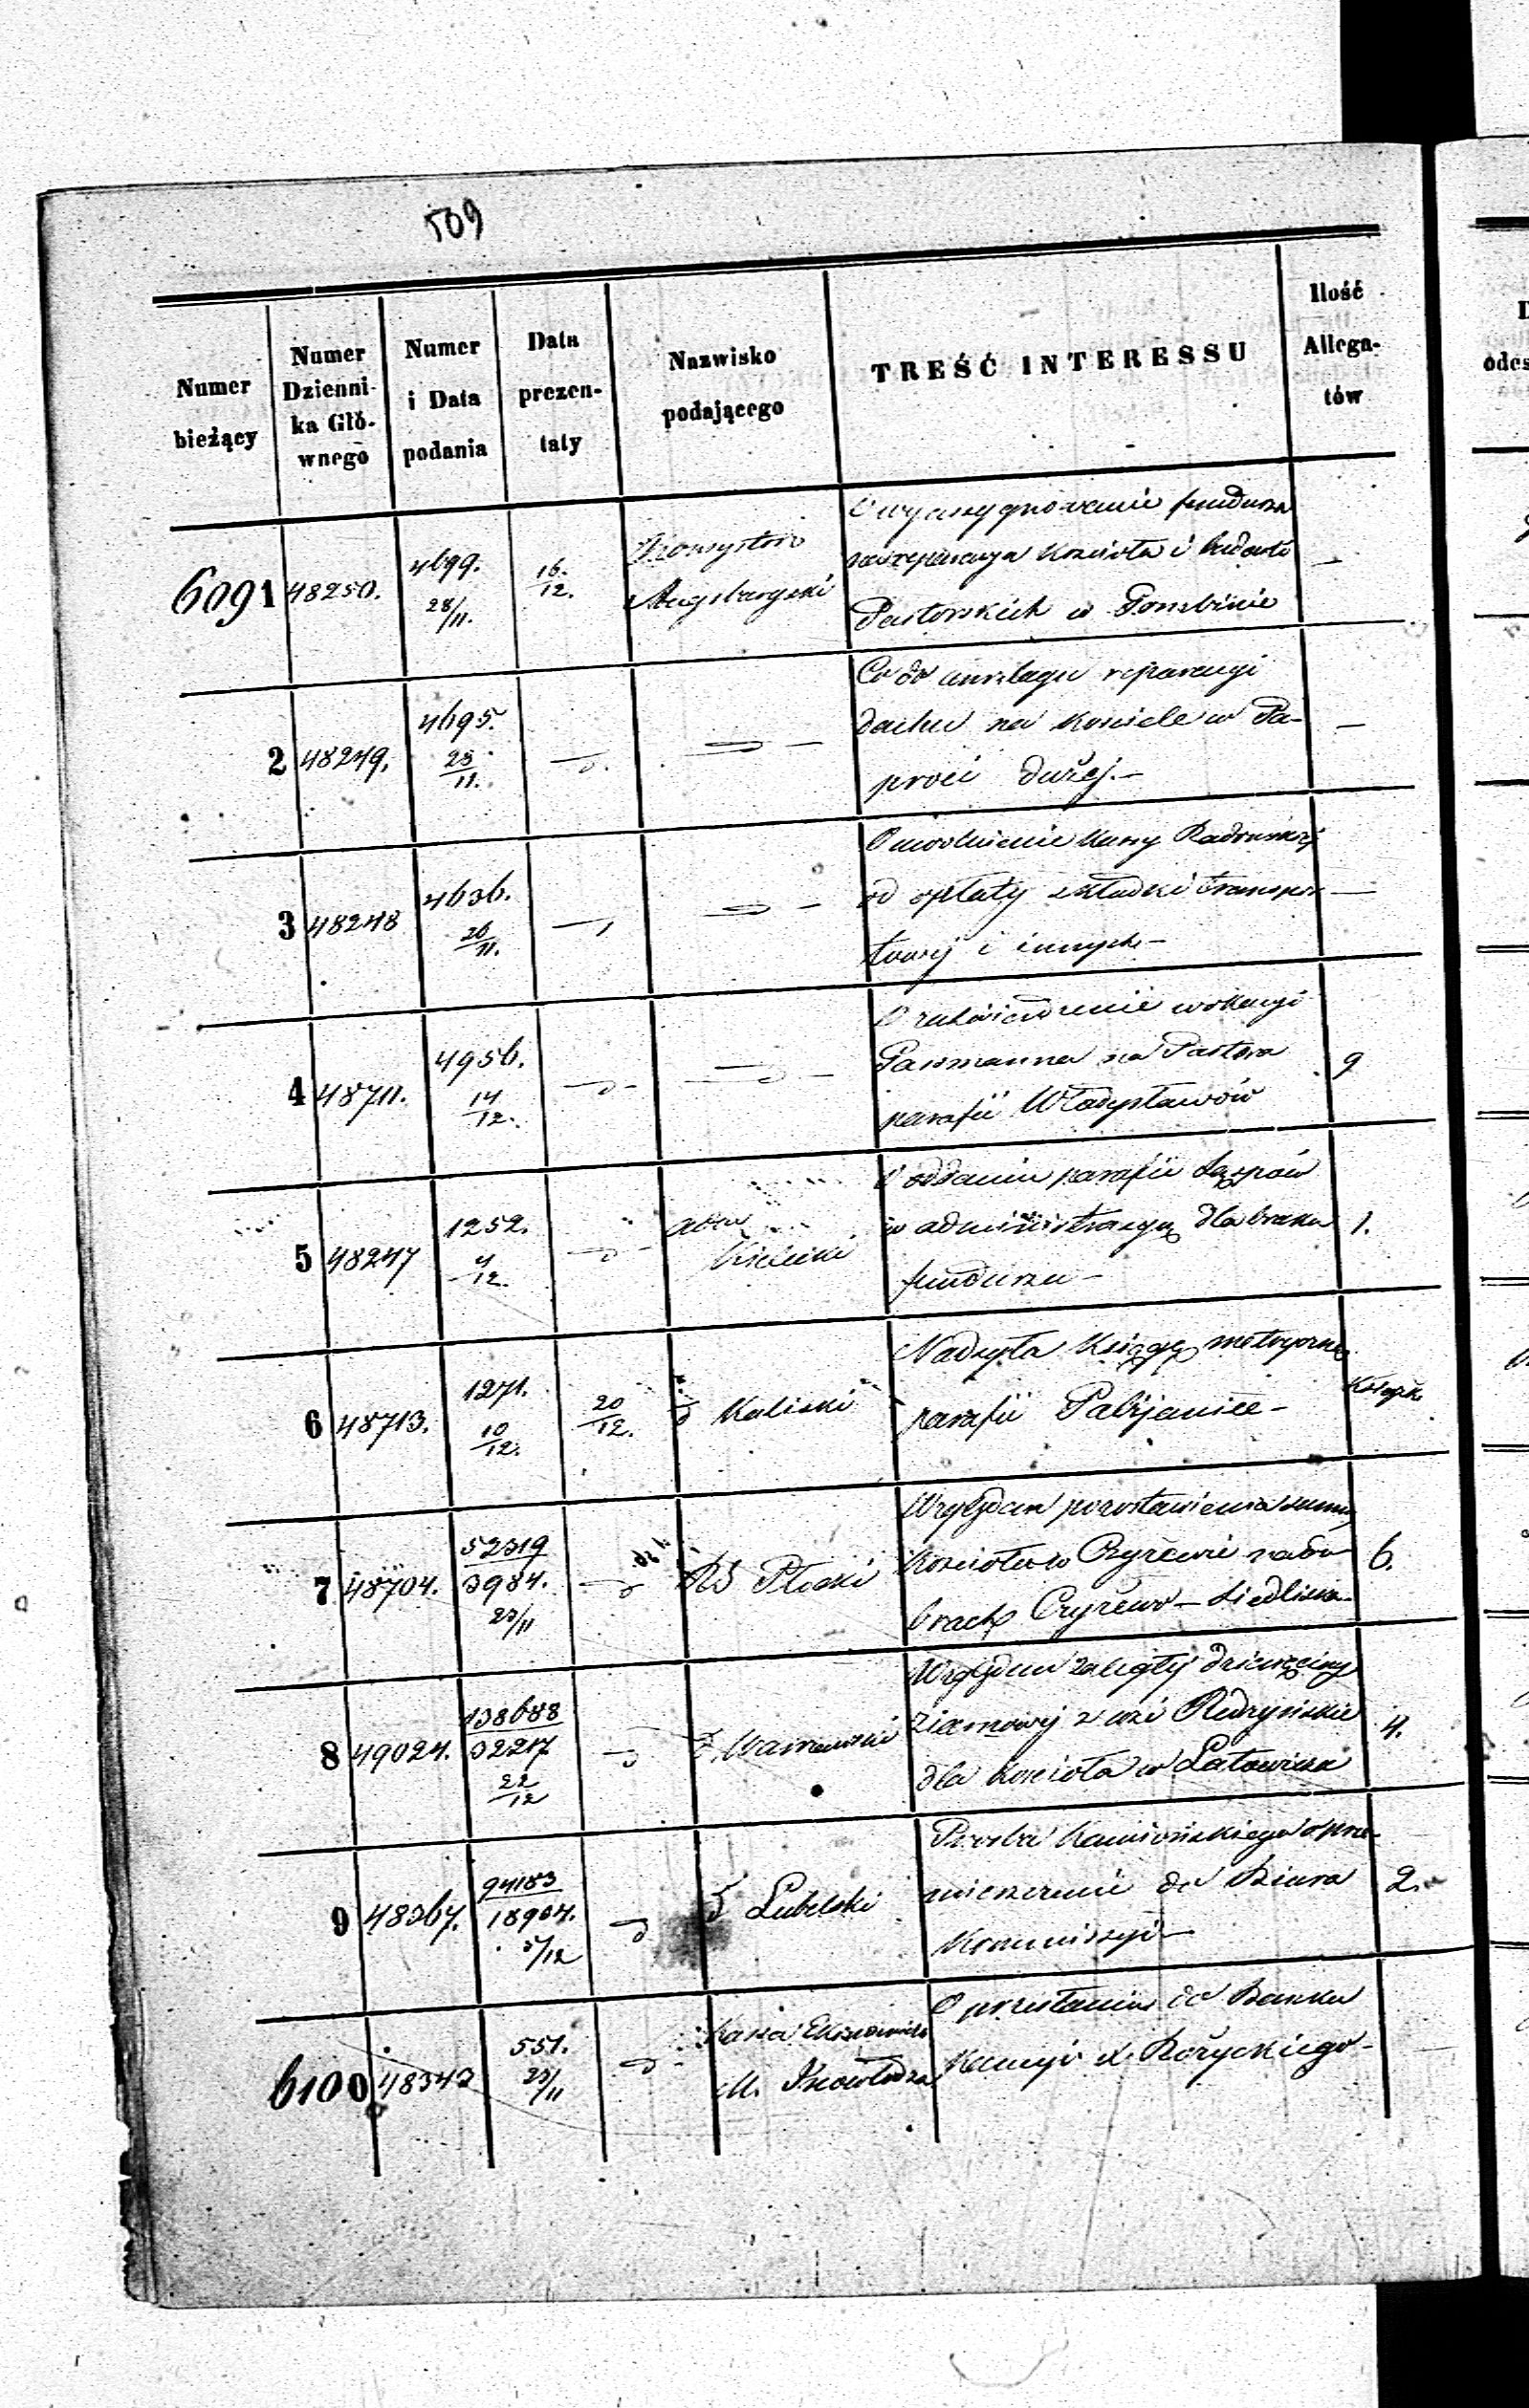 509
Numer bieżący
Numer Dzienni- ka Głó- wnego
Numer i Data podania
Data prezen- taty
Nazwisko podającego
TREŚĆ INTERESSU
Ilość Allega- tów
6091 48250. 4699. 28/11. 16/12. Konsystorz Augsburgski
O wyassygnowanie funduszu
na reparacya Kościoła i budowli
Pastorskich w Gombinie
2 48249. 4695. 25/11.
Co do anszlagu reparacyi
dachu na Kościele w Pa-
proci dużej.
3 48248 4636. 26/11.
O uwolnienie Kassy Radomskiej
od opłaty składki transpor-
towej i innych
4 48711. 4956. 14/12.
O zatwierdzenie wokacyi
na Pastora 9
parafii Władysławów
5 48247 1252. 4/12. Adm Kielecki
O oddaniu parafii
w administracyą dla braku 1.
funduszu
6 48713. 1271. 10/12. 20/12. d Kaliski
Nadsyła Księgę metryczną
parafii Pabijanice
7 48704. 52319 3984. 23/11 RG Płocki
Względem pozostawienia summy
Kościoła w Czyżewie na do- 6.
brach Czyżewo-Siedliska
8 49024. 138688 32217 22/12 d. Warszawski
Względem zaległej dziesięciny
ziarnowej z wsi Rudzyńskie 4.
dla Kościoła w Latowiczu
9 48367. 94183 18904. 5/12 d Lubelski
Prośba Kamieńskiego o pra-
mieszczenie do Biura 2.
Kommissyi
6100 48343 551. 23/11 Kassa Ekonomicz M. Inowłodza
O przesłaniu do Banku
Kaucyi X. Różyckiego